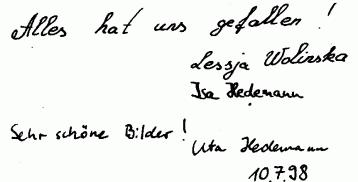 Alles hat uns gefallen!
Lessja Wolinska
Isa Hedemann
Sehr schöne Bilder!
Uta Hedemann
10.7.98